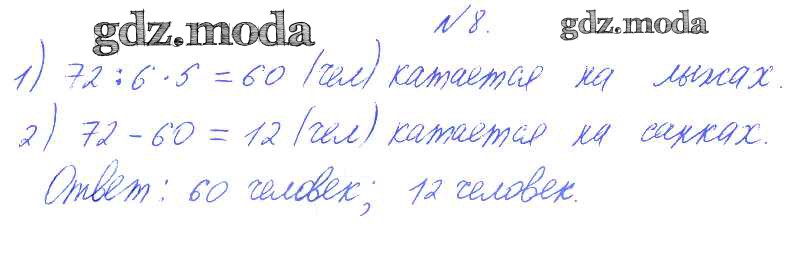 gdz.moda N 8. gdz.moda
1) 72 : 6 · 5 = 60 (чел) катается на лыжах.
2) 72 - 60 = 12 (чел) катается на санках.
Ответ: 60 человек; 12 человек.